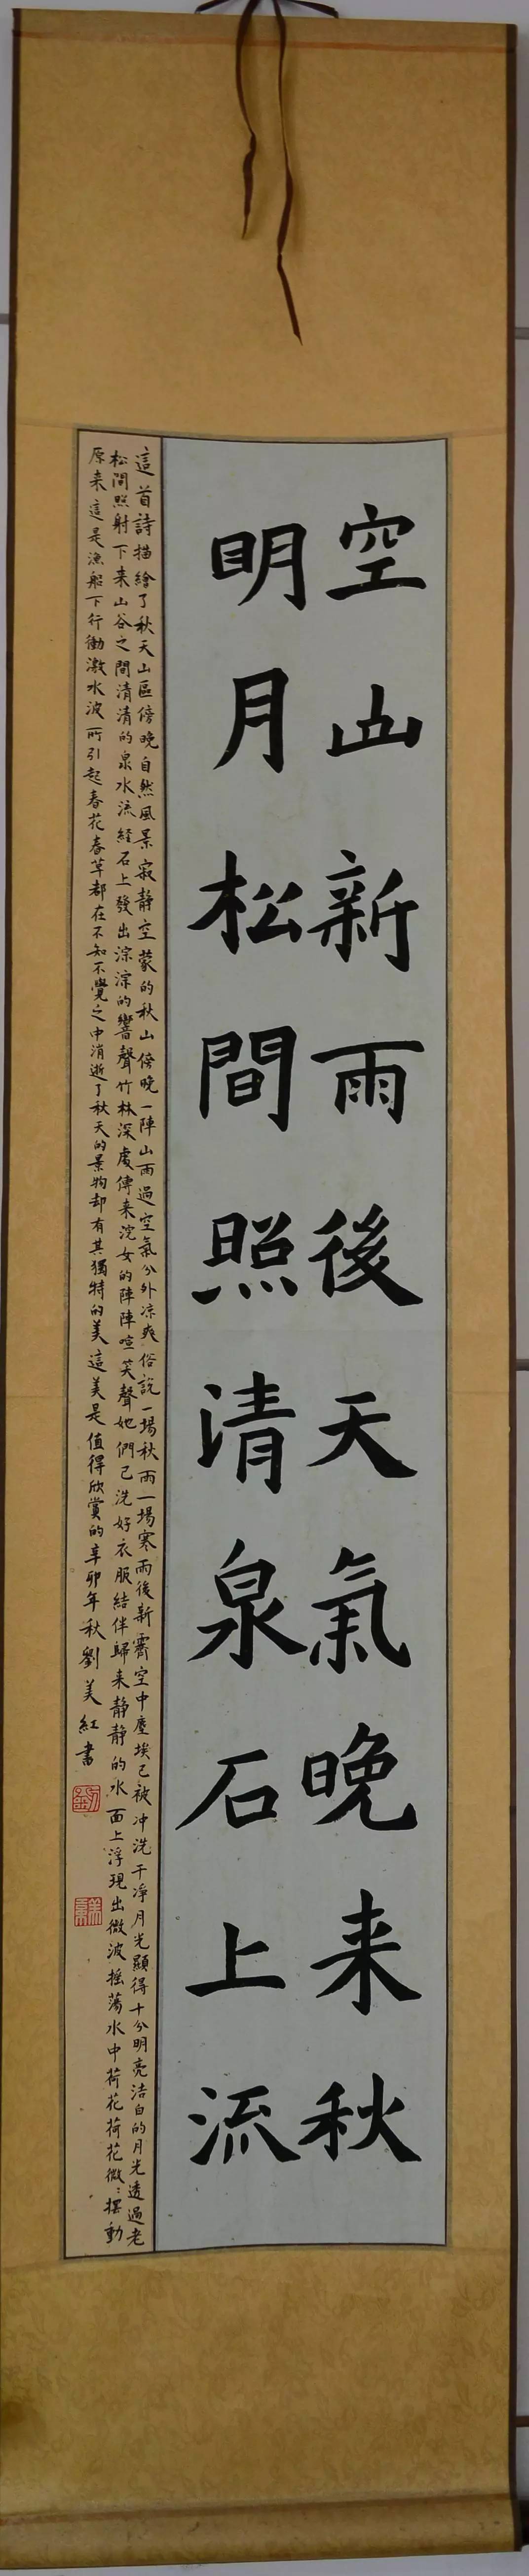 空山新雨後天氣晚来秋
明月松間照清泉石上流
這首詩描繪了秋天山區傍晚自然風景寂靜空蒙的秋山傍晚一陣山雨過空氣分外凉爽俗說一場秋雨一場寒雨後新霽空中塵埃已被冲洗干净月光顯得十分明亮洁白的月光透過老
松間照射下来山谷之間清清的泉水流經石上發出淙淙的響聲竹林深處傳来浣女的陣陣喧笑聲她們已洗好衣服結伴歸来静静的水面上浮現出微波摇蕩水中荷花荷花微：摆動
原来這是漁船下行働激水波所引起春花春草都在不知不覺之中消逝了秋天的景物却有其獨特的美這美是值得欣賞的辛卯年秋劉美紅書